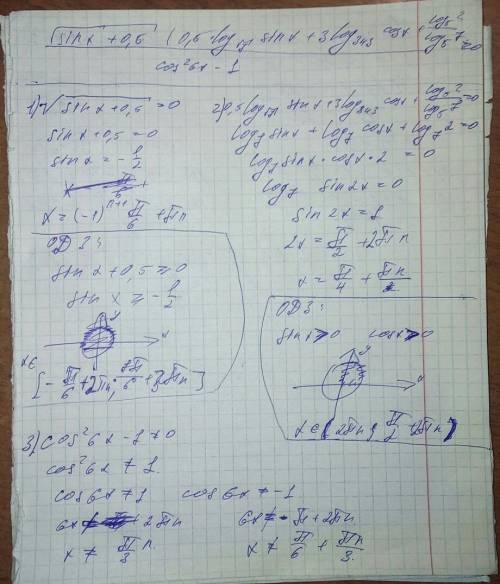 √(sinx + 0,5) (0,5·log√7 sinx + 3log343 cosx + log5 2 / log5 7) = 0
cos²6x - 1
1) √(sinx + 0,5) = 0
sinx + 0,5 = 0
sin x = - 1/2
x = (-1)ⁿ⁺¹ π/6 + πn
ОДЗ:
sin x + 0,5 ≥ 0
sin x ≥ - 1/2
y
x
x∈
[- π/6 + 2πn; 7π/6 + 2πn]
2) 0,5log√7 sinx + 3log343 cosx + log5 2 / log5 7 = 0
log7 sinx + log7 cosx + log7 2 = 0
log7 sinx · cosx · 2 = 0
log7 sin2x = 0
sin 2x = 1
2x = π/2 + 2πn
x = π/4 + πn
ОДЗ:
sin x > 0 cos x > 0
y
x
x∈(2πn; π/2 + 2πn)
3) cos²6x - 1 ≠ 0
cos²6x ≠ 1
cos6x ≠ 1 cos6x ≠ -1
6x ≠ 2πn 6x ≠ π + 2πn
x ≠ πn/3 x ≠ π/6 + πn/3